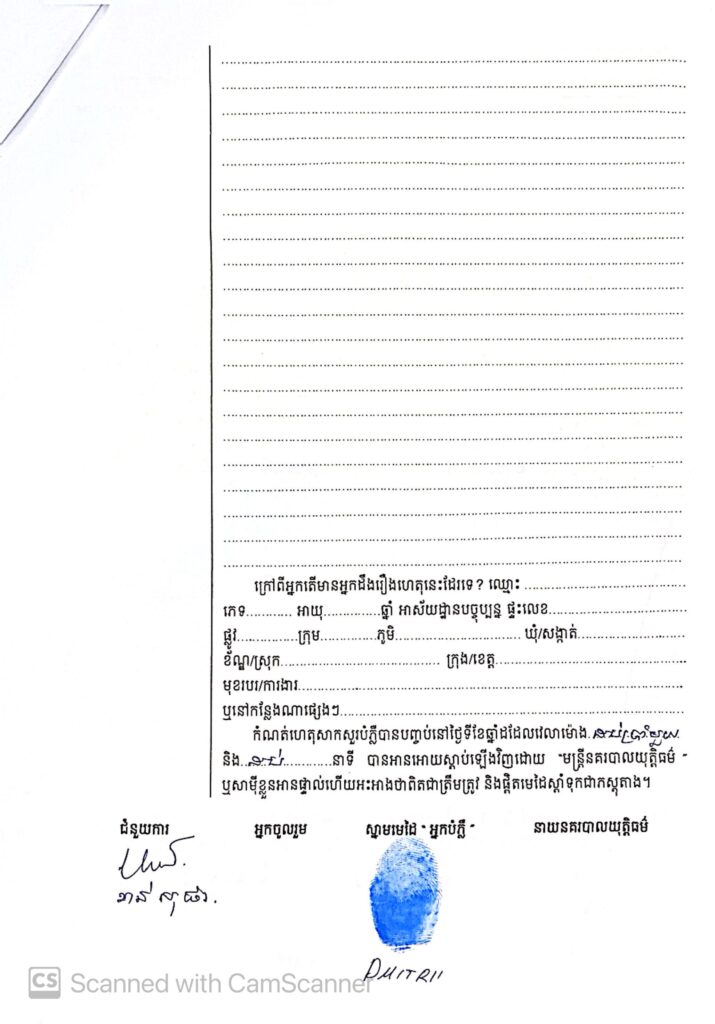 ក្រៅពីអ្នកតើមានអ្នកដឹងរឿងហេតុនេះដែរទេ? ឈ្មោះ ..............................
ភេទ............ អាយុ...............ឆ្នាំ អាស័យដ្ឋានបច្ចុប្បន្ន ផ្ទះលេខ..............................
ផ្លូវ................ក្រុម..............ភូមិ................................. ឃុំ/សង្កាត់............................
ខ័ណ្ឌ/ស្រុក.......................................... ក្រុង/ខេត្ត..................................................
មុខរបរ/ការងារ.............................................................................................
ឬនៅកន្លែងណាផ្សេងៗ.....................................................................................
កំណត់ហេតុសាកសួរបំភ្លឺបានបញ្ចប់នៅថ្ងៃទីខែឆ្នាំដដែលវេលាម៉ោង ដប់ប្រាំមួយ
និង..ដប់............នាទី បានអានអោយស្តាប់ឡើងវិញដោយ "មន្ត្រីនគរបាលយុត្តិធម៌ "
ឬសាម៉ីខ្លួនអានផ្ទាល់ហើយអះអាងថាពិតជាត្រឹមត្រូវ និងផ្តិតមេដៃស្តាំទុកជាភស្តុតាង។
ជំនួយការ អ្នកចូលរួម ស្នាមមេដៃ " អ្នកបំភ្លឺ " នាយនគរបាលយុត្តិធម៌
DMITRII
CS Scanned with CamScanner